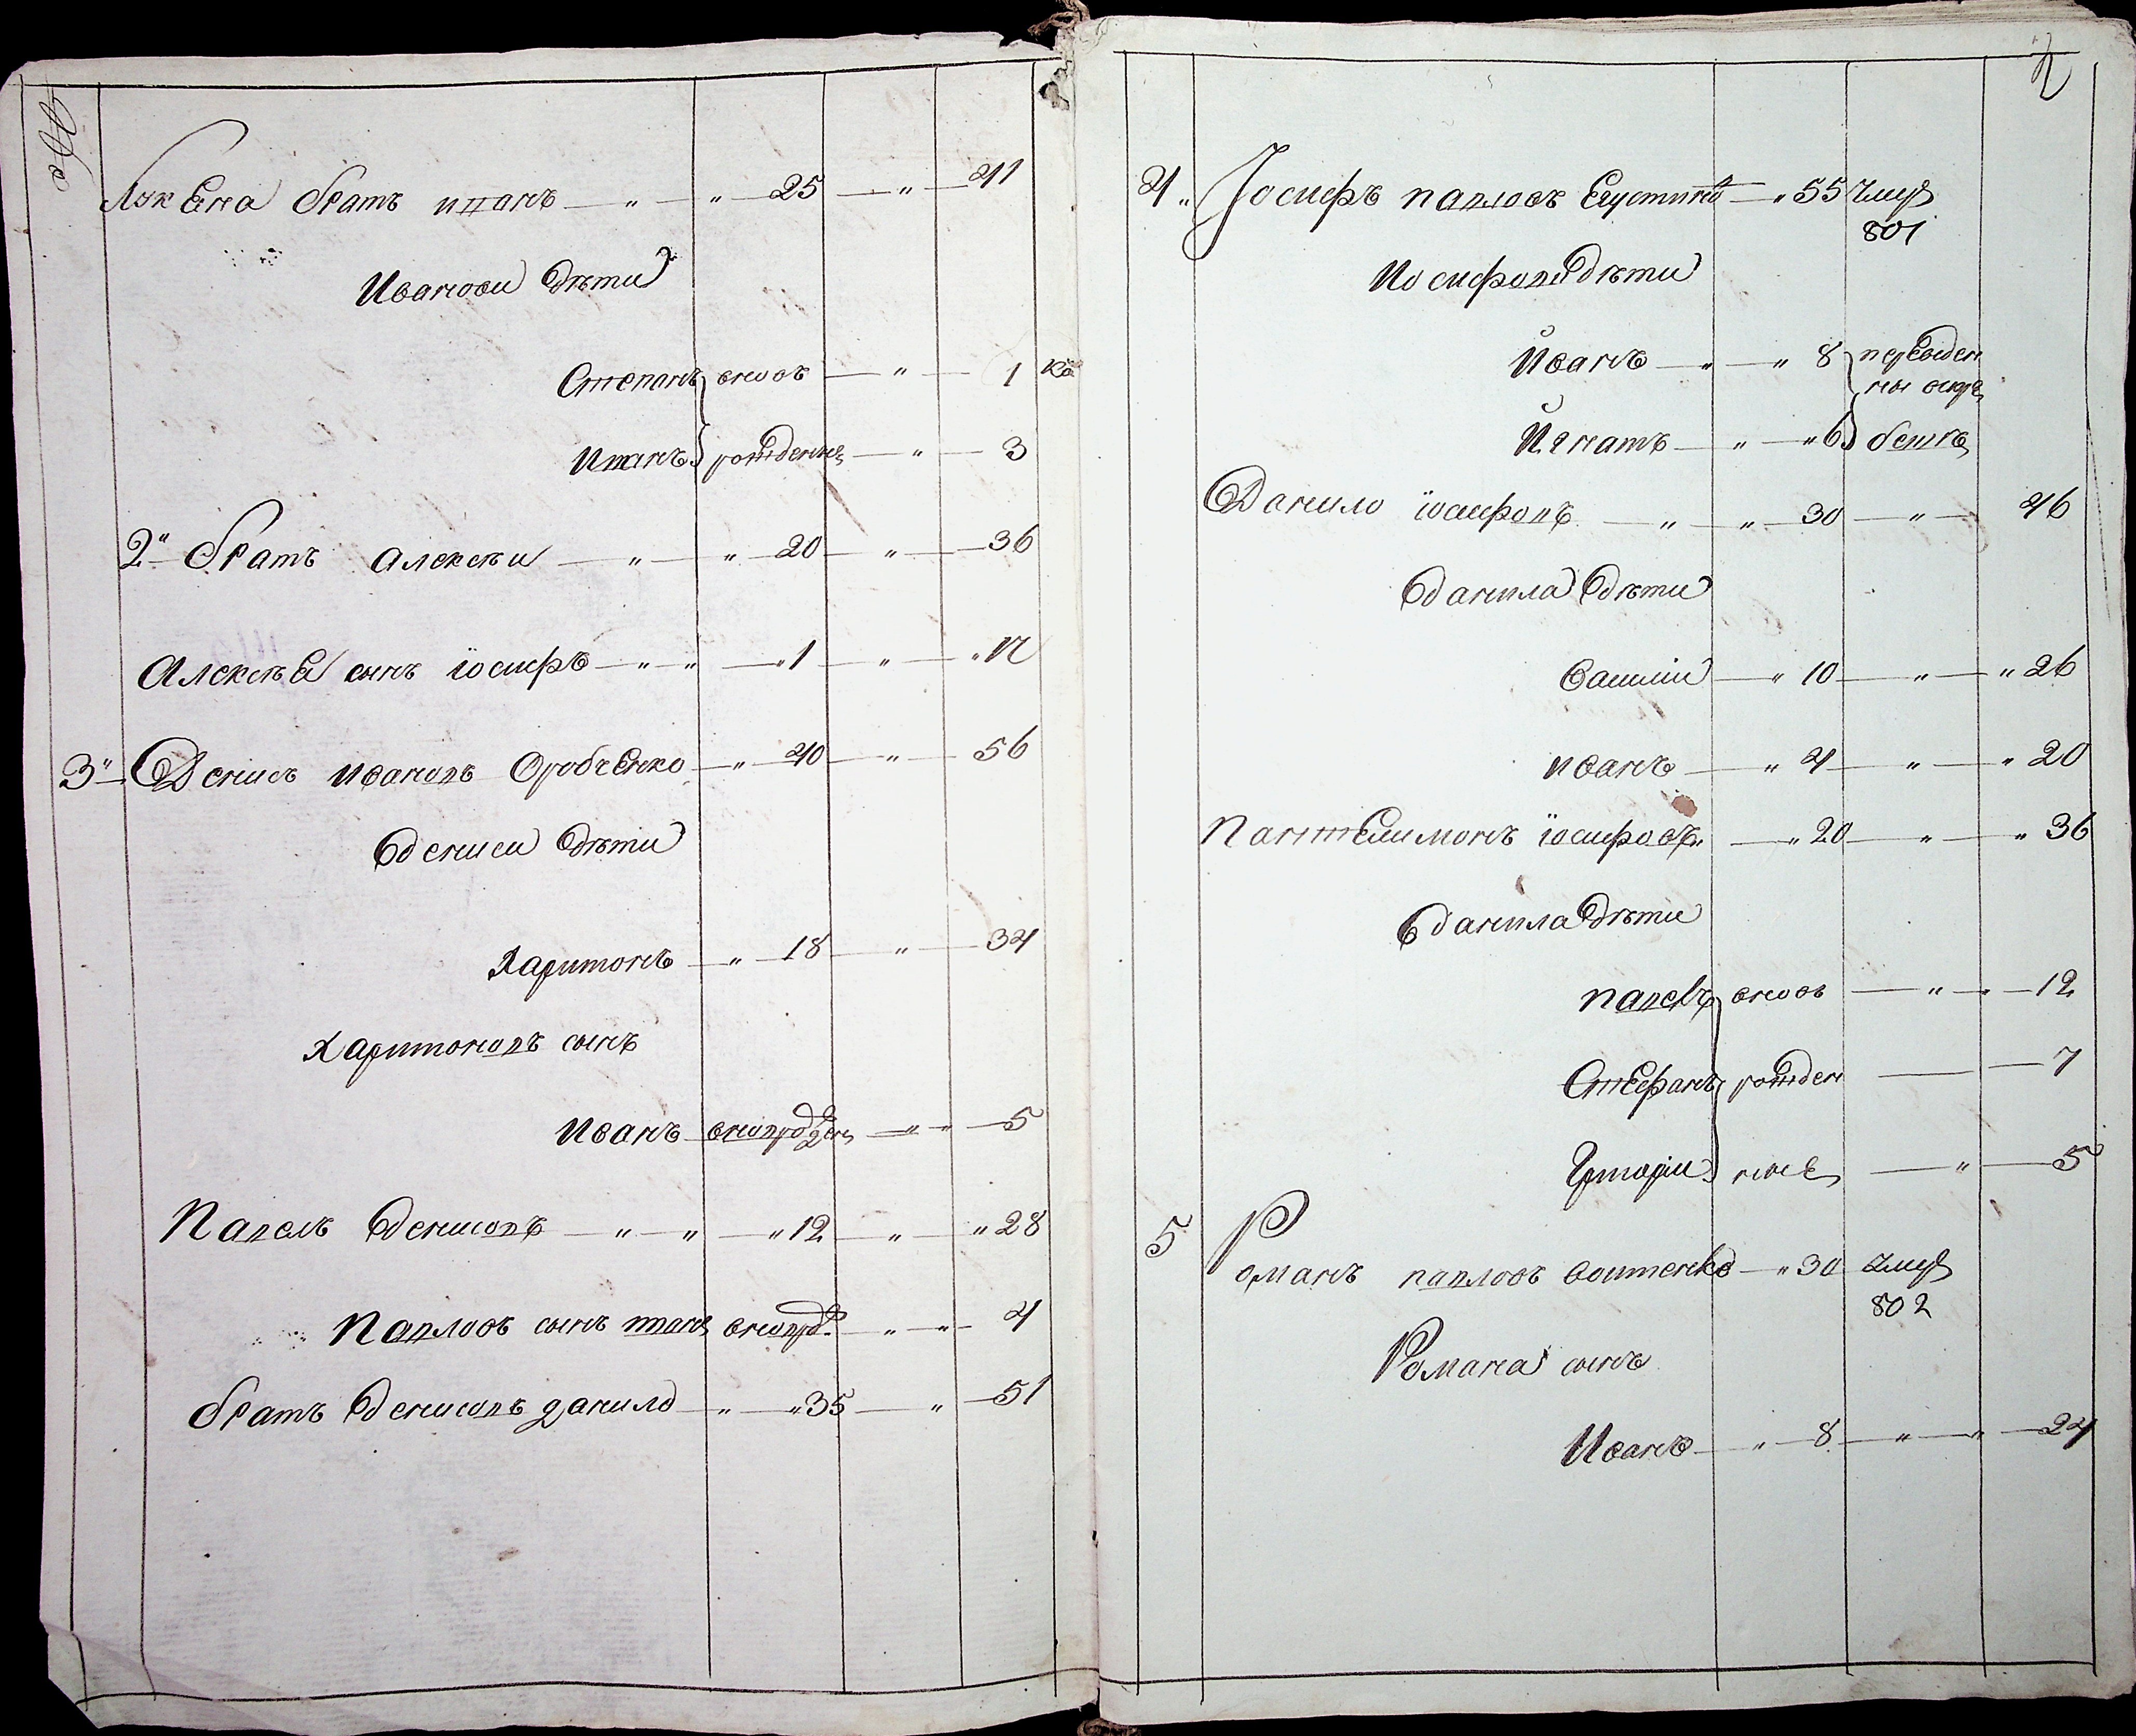 Лукяна братъ иванъ — " — " — 25 — " — 41
Иванови дѣти
Степанъ } вновь — " — 1
Иванъ } рожденнѣ — " — 3
2" братъ алексѣи — " — " — 20 — " — 36
алексѣя сынъ іосифъ — " — " — 1 — " — " 17
3" Денисъ ивановъ Оробченко — " — 40 — " — 56
дениси дѣти
Харитонъ — " — 18 — " — 34
Харитоновъ сынъ
Иванъ — " — " — 5
Павелъ денисовъ — " — " — " 12 — " — " 28
Павловъ сынъ — " — " — 4
братъ денисовъ данило — " — " 35 — " — 51
4" Іосифъ павловъ — " 55 умре
801
Иосифови дѣти
Иванъ — " — " 8 } переведен
Игнатъ — " — " 6 }
Данило іосифовъ — " — " — 30 — " — 46
данила дѣти
василіи — " 10 — " — " 26
иванъ — " 4 — " — " 20
Пантелимонъ іосифовъ — " 20 — " — " 36
данила дѣти
павелъ } вновь — " — 12
Стефанъ } рожден — 7
Григорiи } ные — " — 5
5 Романъ павловъ воитенко — " 30 умре
802
Романа сынъ
Иванъ — " — 8 — " — " — 24